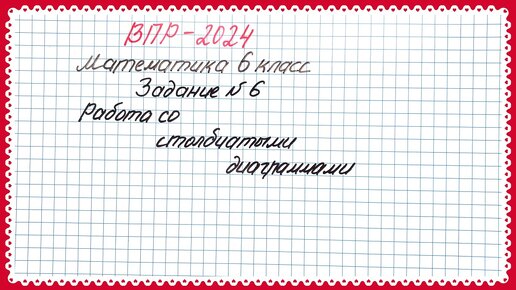 ВПР-2024
Математика 6 класс
Задание № 6
Работа со
столбчатыми
диаграммами